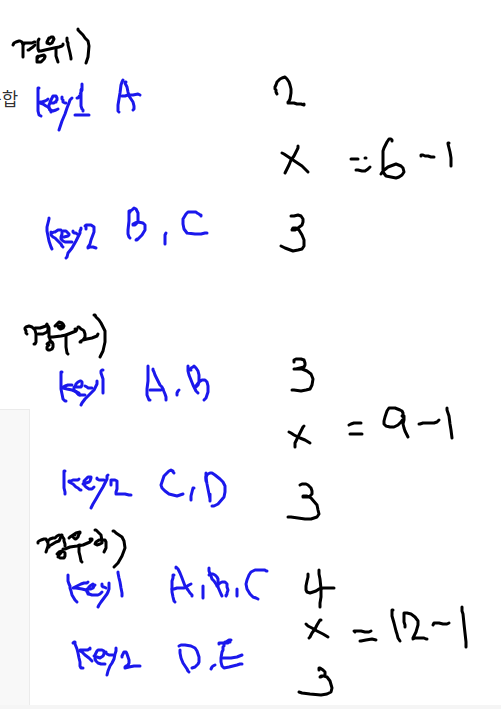 경우1)
합 key1 A 2
x = 6 - 1
key2 B, C 3
경우2)
key1 A, B 3
x = 9 - 1
key2 C, D 3
경우3)
key1 A, B, C 4
x = 12 - 1
key2 D, E 3